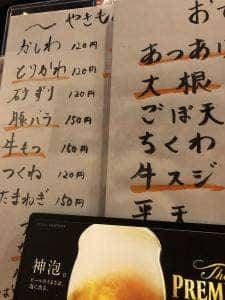 〜やきも
かしわ 120円
とりかわ 120円
砂ずり 120円
豚バラ 150円
牛もつ 150円
つくね 120円
たまねぎ 150円
お
あつあ
大根
ごぼ天
ちくわ
牛スジ
平天
神泡。
The
PREM